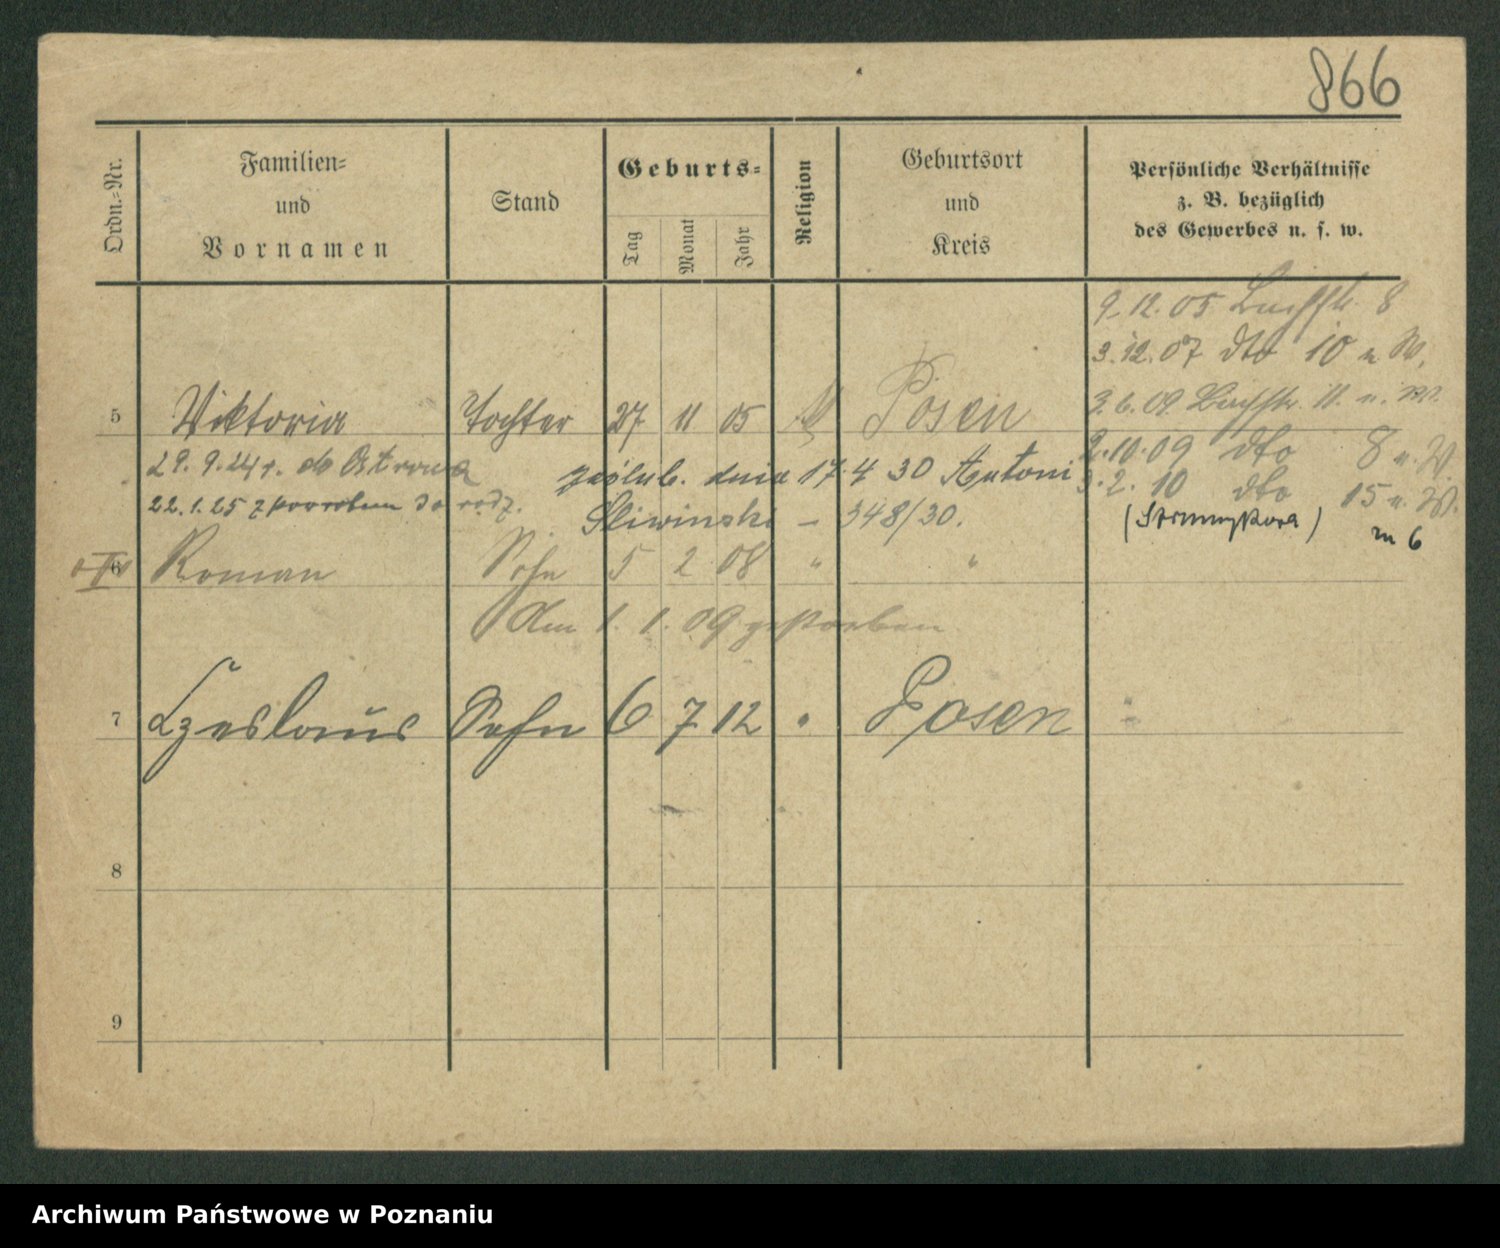 866
Ordn.-Nr.
Familien-
und
Vornamen
Stand
Geburts-
Tag
Monat
Jahr
Religion
Geburtsort
und
Kreis
Persönliche Verhältnisse
z. B. bezüglich
des Gewerbes u. s. w.
9.12.05 8
3.12.07 dto 10 u. W.
3.6.09 11 u. W.
5 Viktoria Tochter 27 11 05 Posen
2.10.09 dto 8 u. W.
29.9.24 r. do Ostrowa
zaślub. dnia 17.4 30 Antoni
3.2.10 dto 15 u. W.
22.1.25 z powrotem do rodz.
Śliwinski – 348/30.
m 6
6 Roman Sohn 5 2 08 " "
Am 1. 1. 09 gestorben
7 Czeslaus Sohn 6 7 12 " Posen
8
9
Archiwum Państwowe w Poznaniu